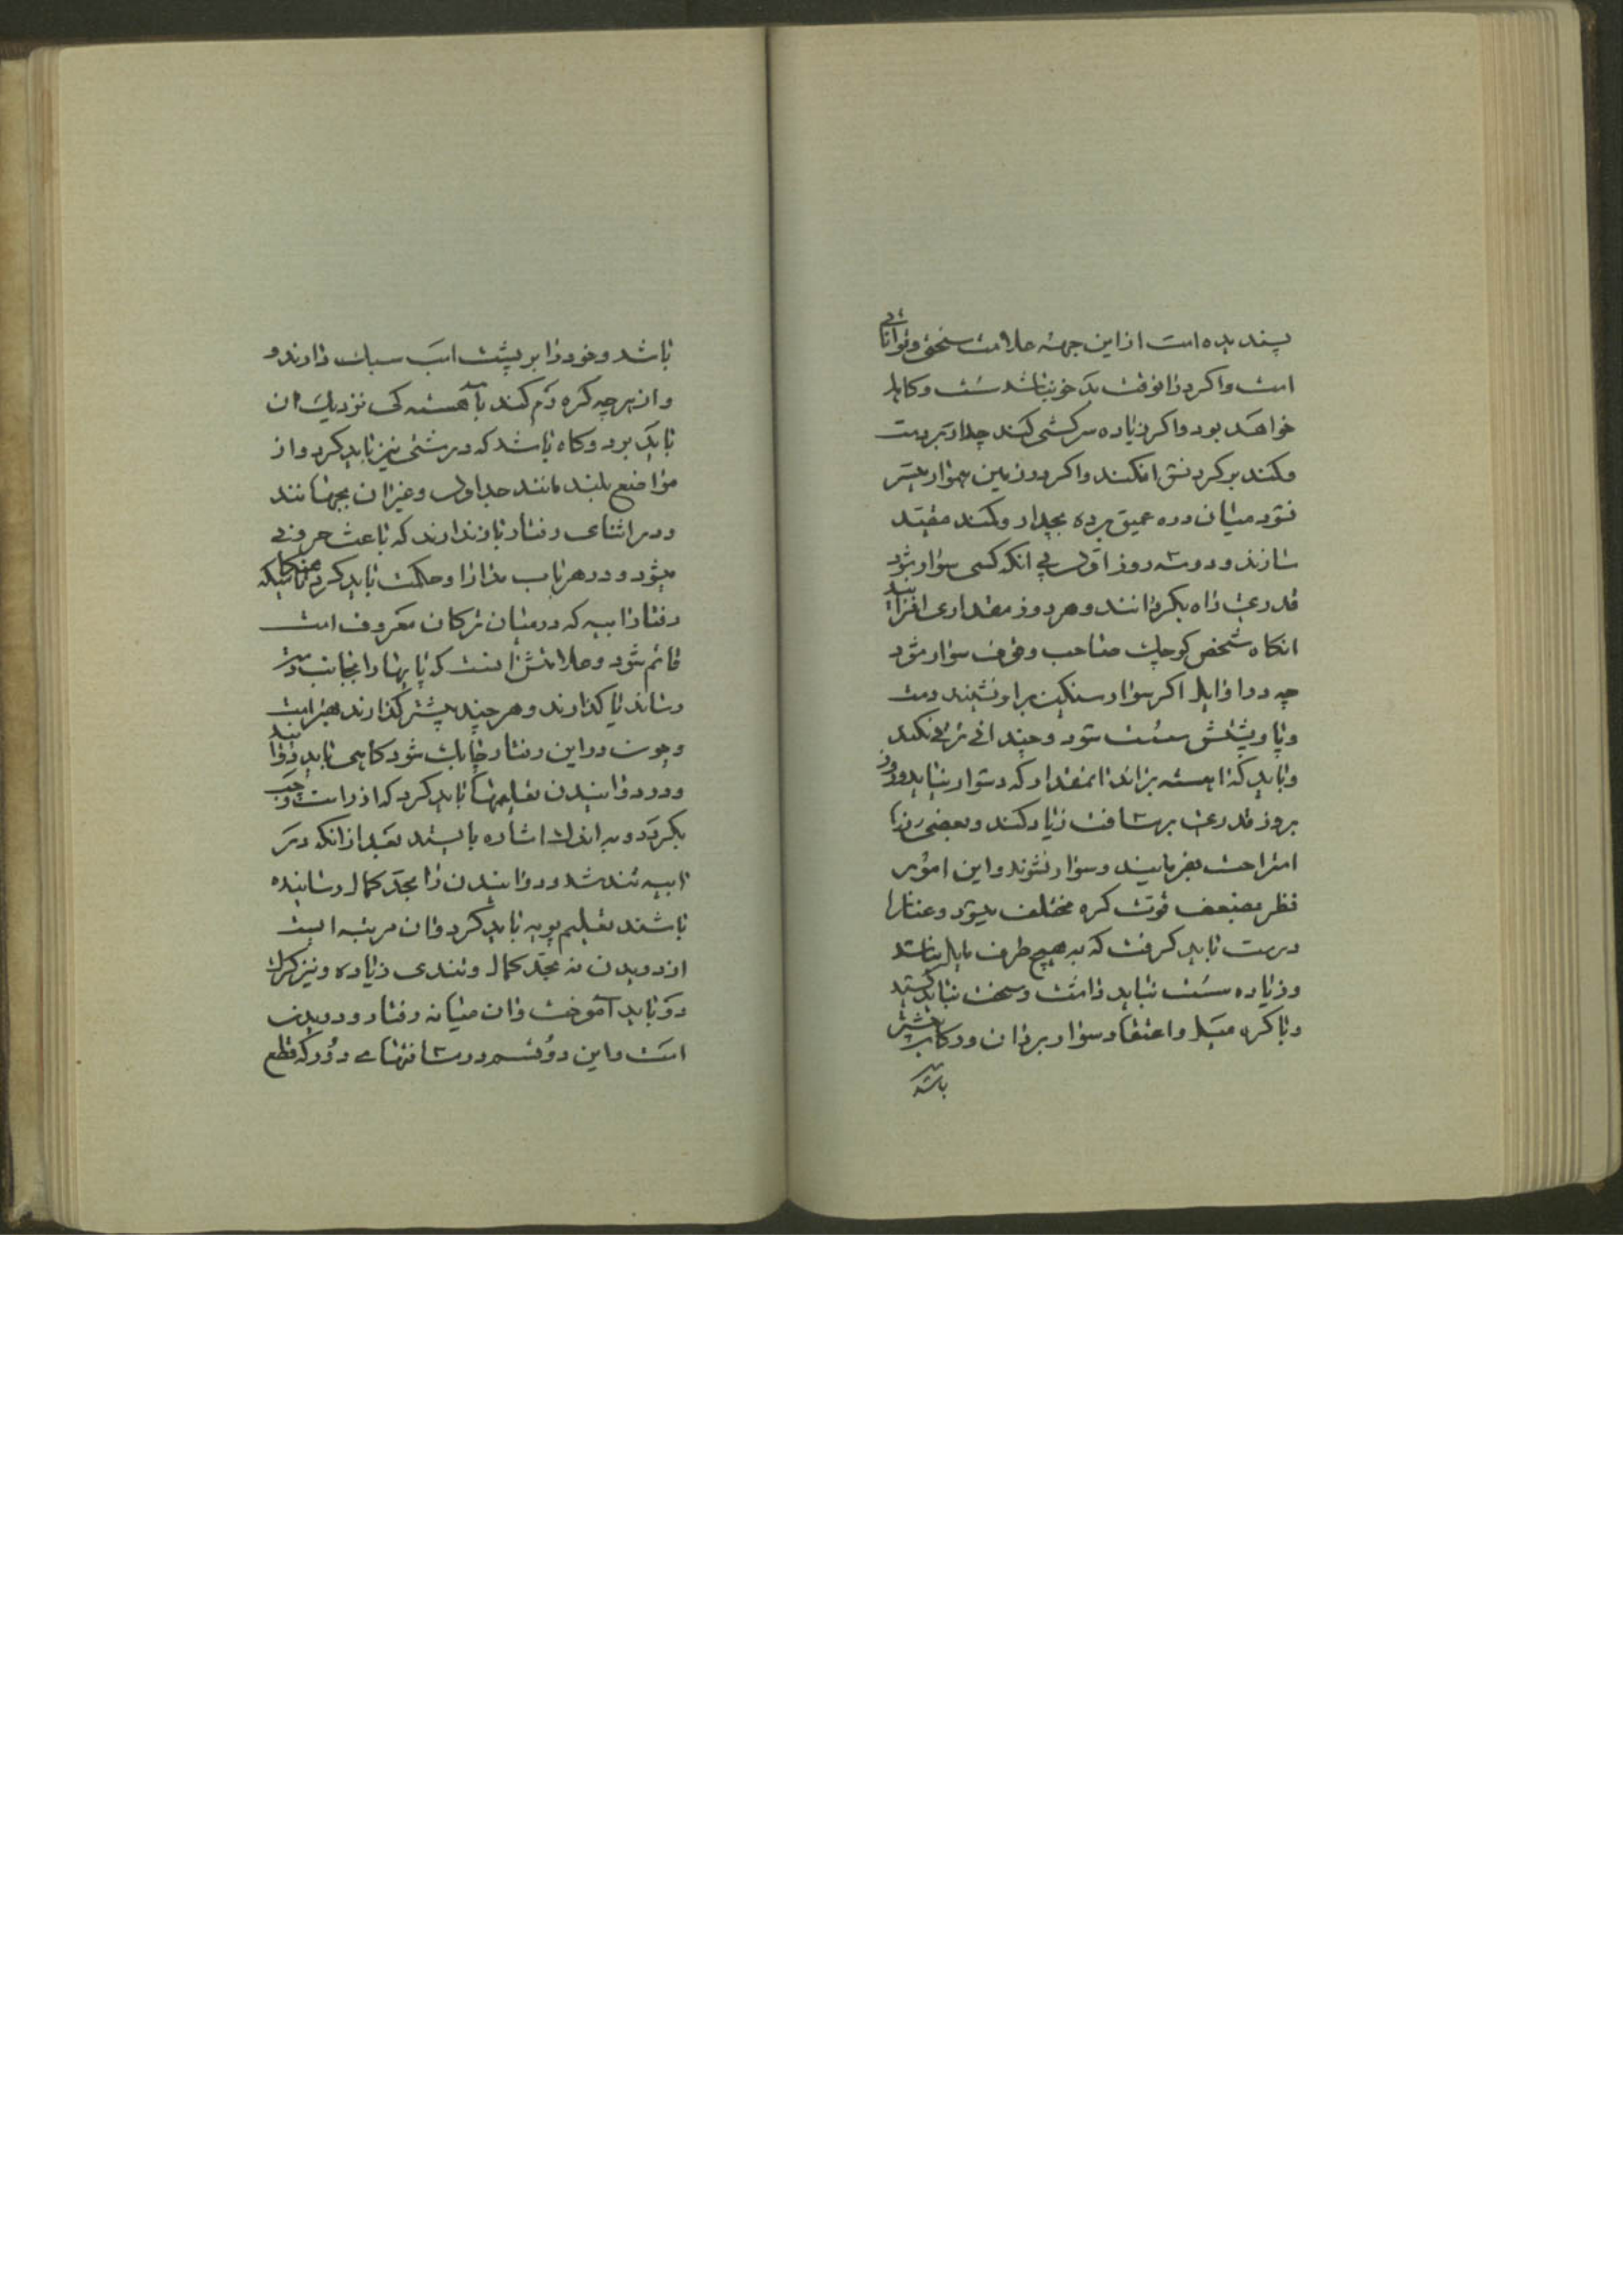 پسندیده است از این جهة علامت سختی و توانائی
است و اگر در انوقت بد خو نباشد سست و کاهل
خواهد بود و اگر زیاده سرکشی کند چدار بر دست
و کند بر گردنش افکنند و اگر در زمین هموار میسر
نشود میان دره عمیق برده بچدار و کند مقید
سازند و دو سه روز اول بی انکه کسی سوار شود
قدری راه بگردانند و هر روز مقداری افزایند
انگاه شخص کوچک صاحب وقوف سوار شود
چه در اوایل اگر سوار سنگین بر او نشیند دست
و پا و پشتش سست شود و چندانی ترقی نکند
و باید که اهسته براند انمقدار که دشوار نیاید و روز
بروز قدری بر مسافت زیاد کند و بعضی روزها
استراحت بفرمایند و سوار نشوند و این امور
نظر بضعف قوت کره مختلف میشود و عنانرا
درست باید گرفت که به هیچ طرف مایل نباشد
و زیاده سست نباید داشت و سخت نباید کشید
و با کره میل و اعتقاد سوار بر ران و رکاب بیشتر
باشد
باشد و خود را بر پشت اسب سبک دارند و
و از هر چه کره رم کند باهستگی نزدیک ان
باید برد و گاه باشد که درشتی نیز باید کرد و از
مواضع بلند مانند جداول و غیر ان بجهانند
و در اثنای رفتار باز ندارند که باعث حرونی
میشود و در هر باب مدارا و حکمت باید کرد تا هنگامیکه
رفتار ابیه که در میان ترکان معروف است
قائم شود و علامتش انست که پایها را بجای دست
رساند یا گذارند و هر چند پیشتر گذارند بهتر است
و چون در این رفتار چابک شود گاهی باید دوانید
و در دوانیدن تعلیمها باید کرد که از راست و چپ
بگردد و به اندک اشاره بایستد بعد از انکه در
ابیه تند شد و دوانیدن را بحد کمال رسانیده
باشند تعلیم پویه باید کرد و ان مرتبه ایست
از دویدن نه بحد کمال و تندی زیاده و نیز گرگ
دو باید آموخت و ان میانه رفتار و دویدن
است و این دو قسم در مسافتهای دور که قطع